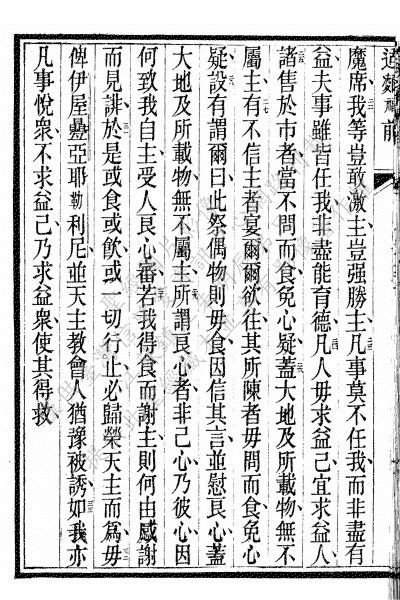 適鄰𥙿前
魔席我等豈敢激主豈强勝主凡事莫不任我而非盡有
益夫事雖皆任我非盡能育德凡人毋求益己宜求益人
諸售於市者當不問而食免心疑蓋大地及所載物無不
屬主有不信主者宴爾爾欲往其所陳者毋問而食免心
疑設有謂爾曰此祭偶物則毋食因信其言並慰良心蓋
大地及所載物無不屬主所謂良心者非己心乃彼心因
何致我自主受人良心審若我得食而謝主則何由感謝
而見誹於是或食或飲或一切行止必歸榮天主而爲毋
俾伊屋曇亞耶勒利尼並天主教會人猶豫被誘如我亦
凡事悅衆不求益己乃求益衆使其得救